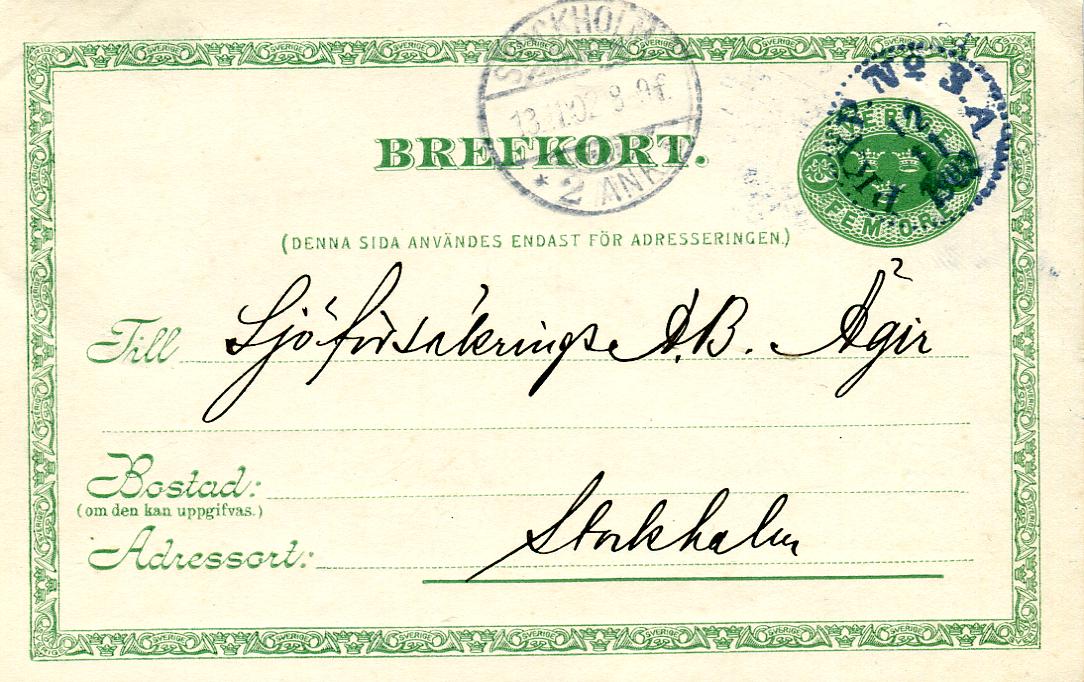 STOCKHOLM
13.11.02 8 Af.
* 2 ANK
PKXP. No 3.A
12
11
1902
SVERIGE
FEM ÖRE
BREFKORT.
(DENNA SIDA ANVÄNDES ENDAST FÖR ADRESSERINGEN.)
Till Sjöförsäkrings A.B. Ägir
Bostad:
(om den kan uppgifvas.)
Adressort: Stockholm